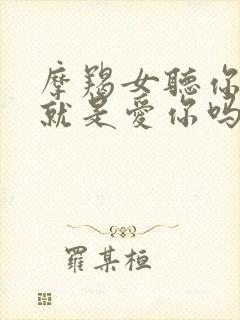 摩羯女聽你
就是愛你吗
羅某桓